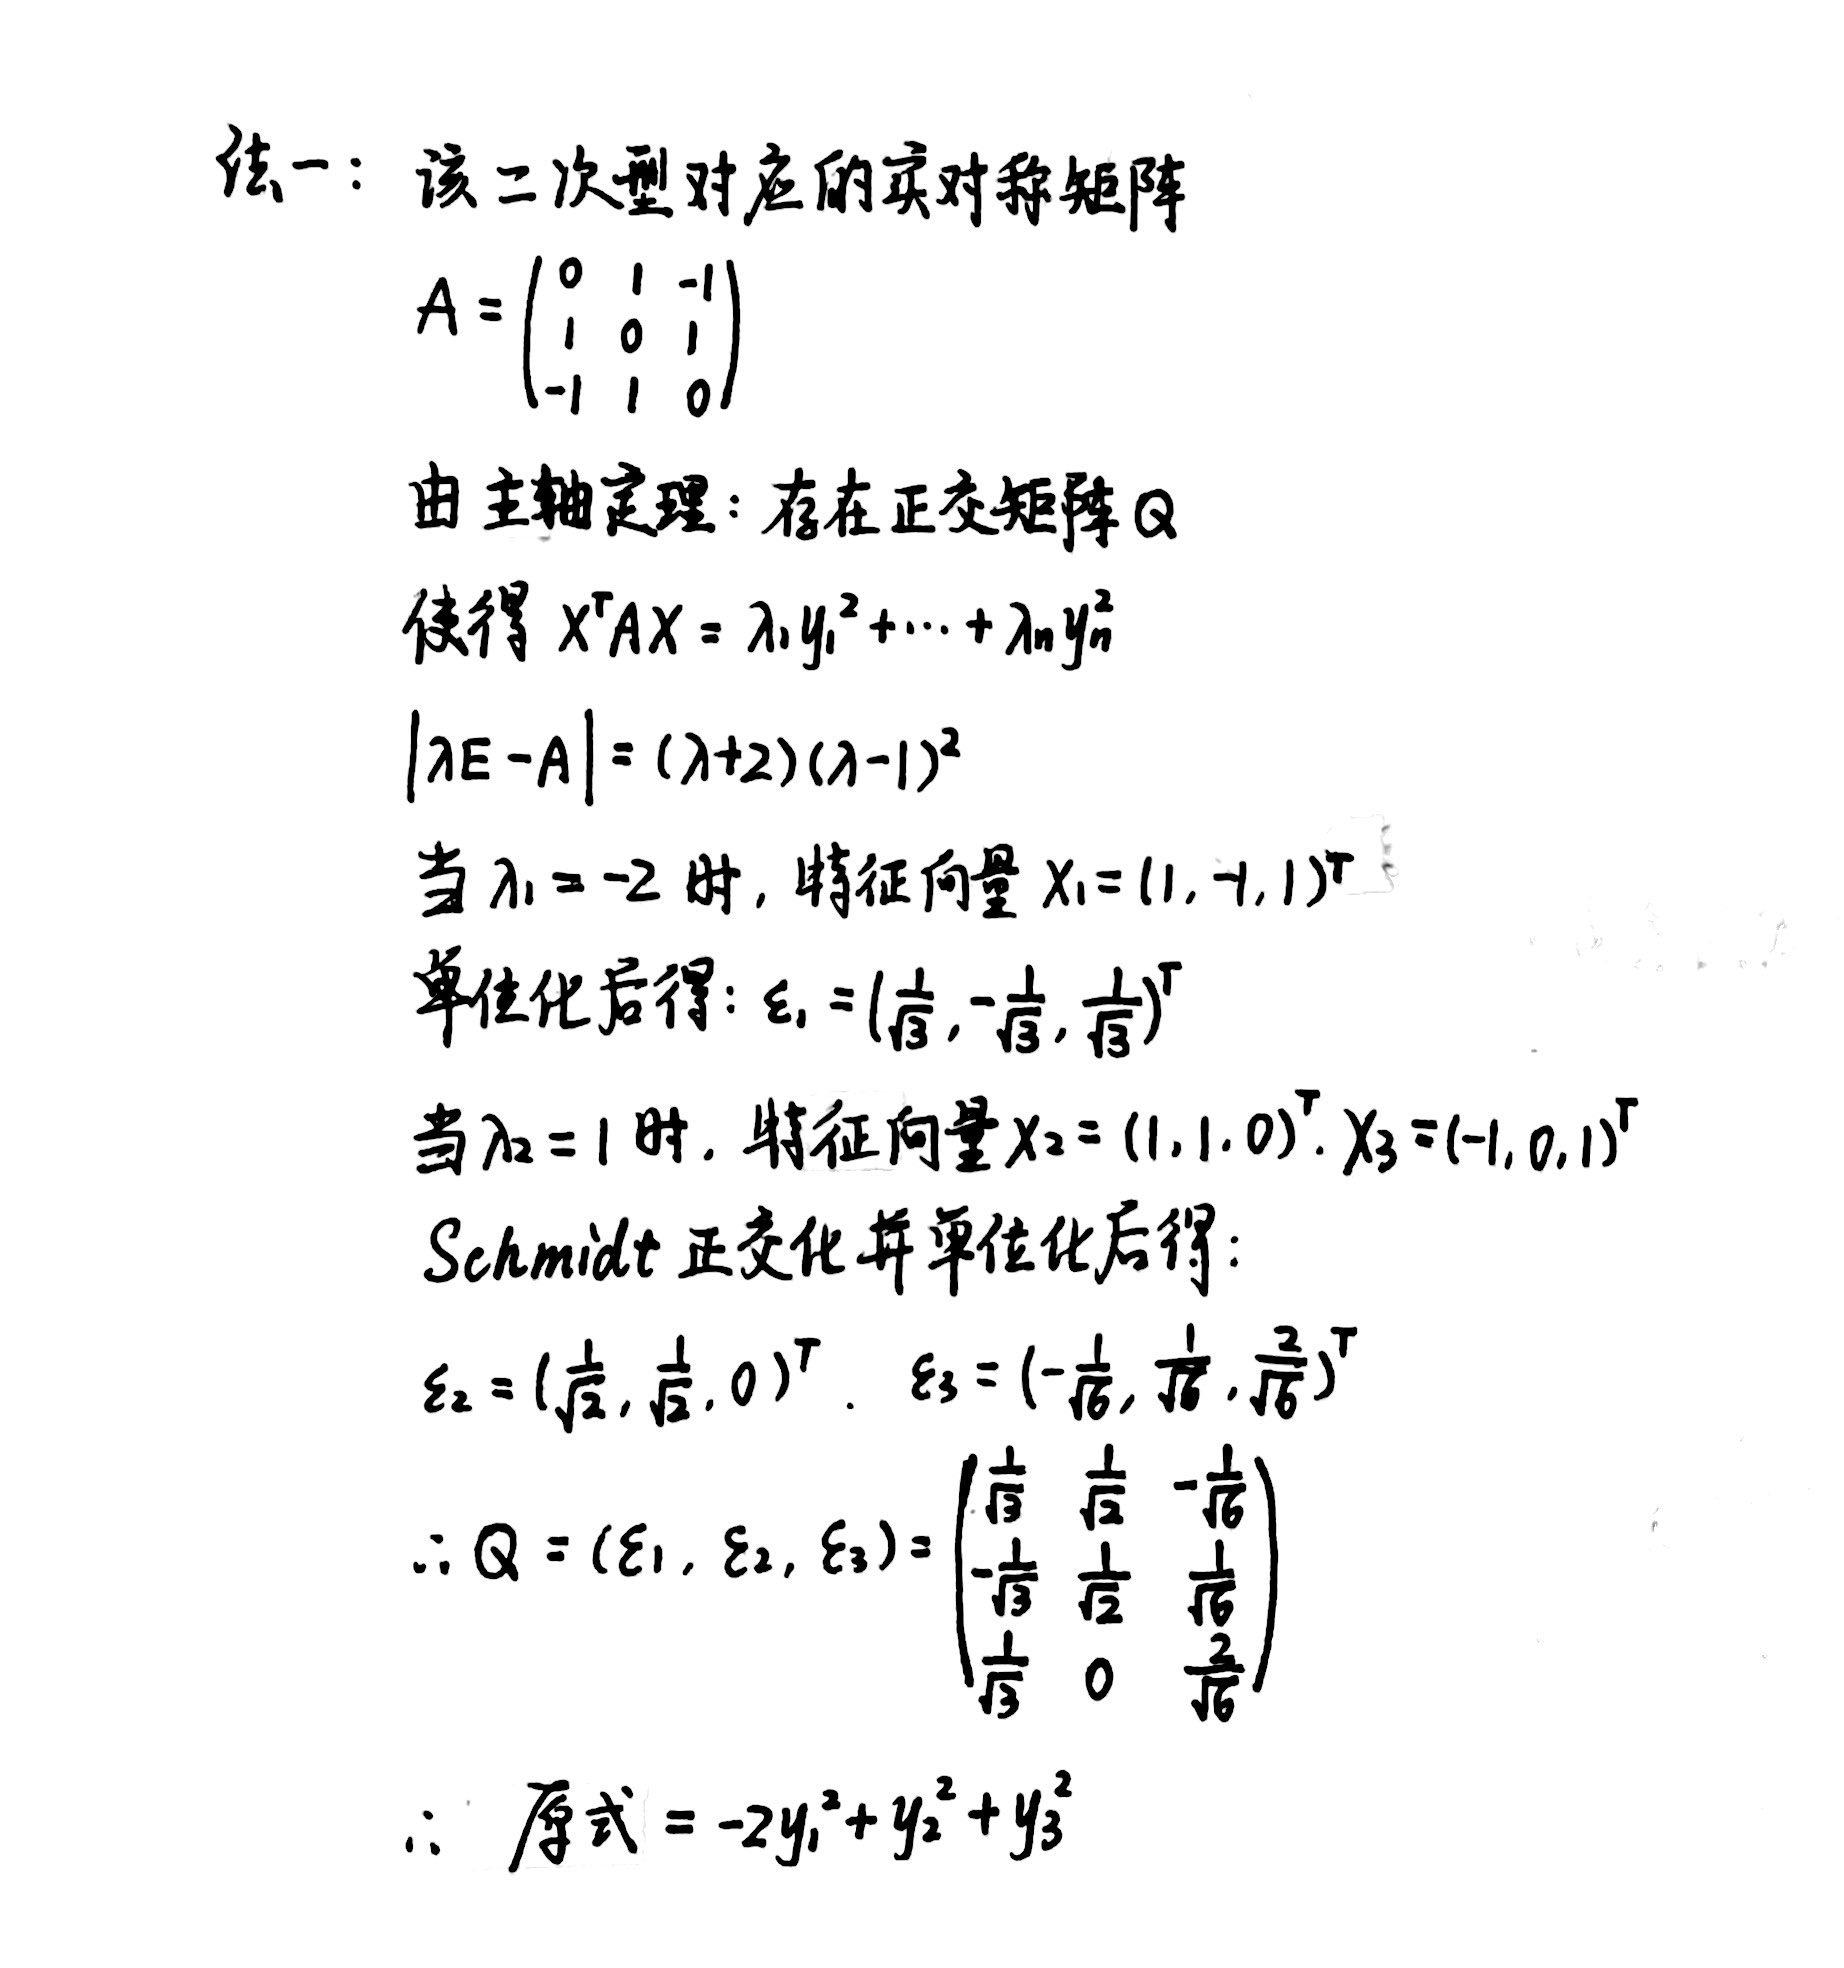 法一: 该二次型对应的实对称矩阵
A = (0 1 -1
1 0 1
-1 1 0)
由主轴定理: 存在正交矩阵Q
使得 XᵀAX = λ₁y₁² + ⋯ + λₙyₙ²
|λE - A| = (λ+2)(λ-1)²
当λ₁ = -2 时, 特征向量 X₁ = (1, -1, 1)ᵀ
单位化后得: ε₁ = (1/√3, -1/√3, 1/√3)ᵀ
当λ₂ = 1 时, 特征向量X₂ = (1, 1, 0)ᵀ. X₃ = (-1, 0, 1)ᵀ
Schmidt 正交化并单位化后得:
ε₂ = (1/√2, 1/√2, 0)ᵀ. ε₃ = (-1/√6, 1/√6, 2/√6)ᵀ
∴ Q = (ε₁, ε₂, ε₃) = (1/√3 1/√2 -1/√6
-1/√3 1/√2 1/√6
1/√3 0 2/√6)
∴ 原式 = -2y₁² + y₂² + y₃²